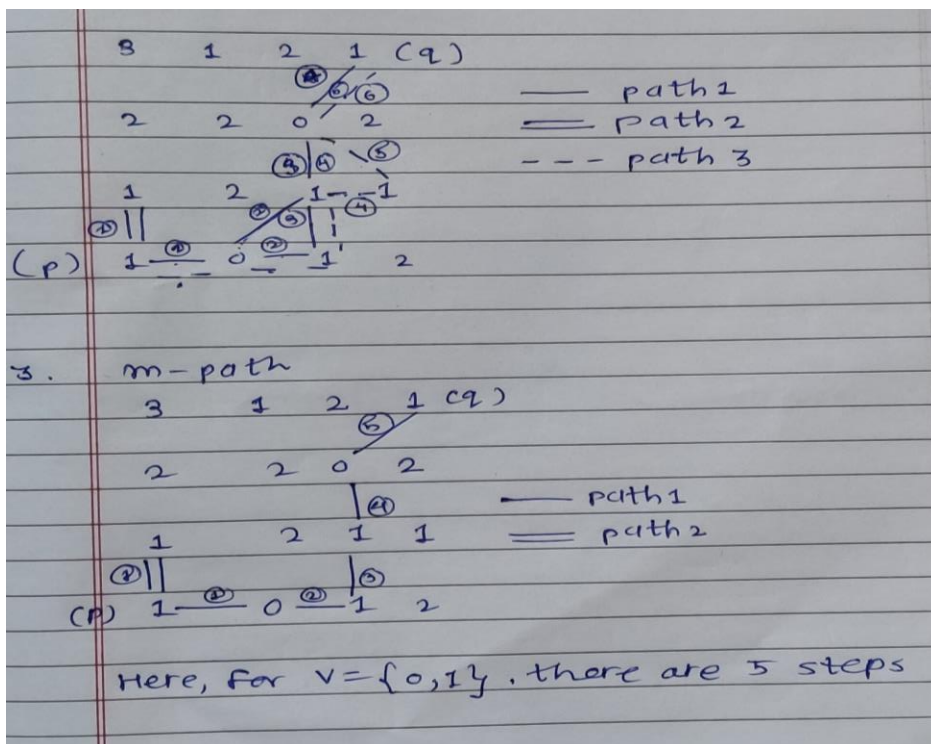 3 1 2 1 (q)
④ ⑥ ⑥
—— path 1
2 2 0 2
══ path 2
③ ④ ⑤
--- path 3
1 2 1 1
④
① ② ③
① ②
(p) 1 0 1 2
3. m-path
3 1 2 1 (q)
⑤
2 2 0 2
④
—— path 1
1 2 1 1
══ path 2
① ③
① ②
(p) 1 0 1 2
Here, for v = {0,1}. there are 5 steps